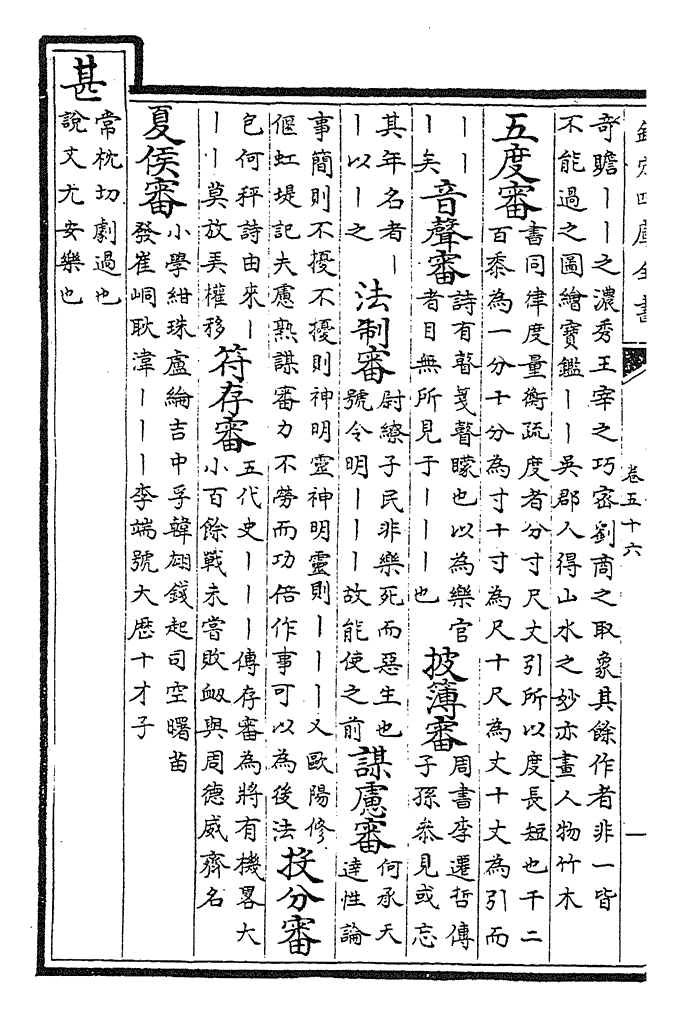 欽定四庫全書 卷五十六 一
奇贍丨丨之濃秀王宰之巧密劉商之取象其餘作者非一皆
不能過之圖繪寶鑑丨丨吳郡人得山水之妙亦畫人物竹木
五度審 書同律度量衡疏度者分寸尺丈引所以度長短也千二
百黍為一分十分為寸十寸為尺十尺為丈十丈為引而
丨丨
丨矣 音聲審 詩有瞽箋瞽矇也以為樂官
者目無所見于丨丨丨也 披簿審 周書李遷哲傳
子孫叅見或忘
其年名者丨
丨以丨之 法制審 尉繚子民非樂死而惡生也
號令明丨丨丨故能使之前 謀慮審 何承天
達性論
事簡則不擾不擾則神明靈神明靈則丨丨丨又歐陽修
偃虹堤記夫慮熟謀審力不勞而功倍作事可以為後法 投分審
包何秤詩由來丨
丨丨莫放弄權移 符存審 五代史丨丨丨傳存審為將有機畧大
小百餘戰未嘗敗衂與周德威齊名
夏侯審 小學紺珠盧綸吉中孚韓翃錢起司空曙苗
發崔峒耿湋丨丨丨李端號大歷十才子
甚 常枕切劇過也
說文尤安樂也